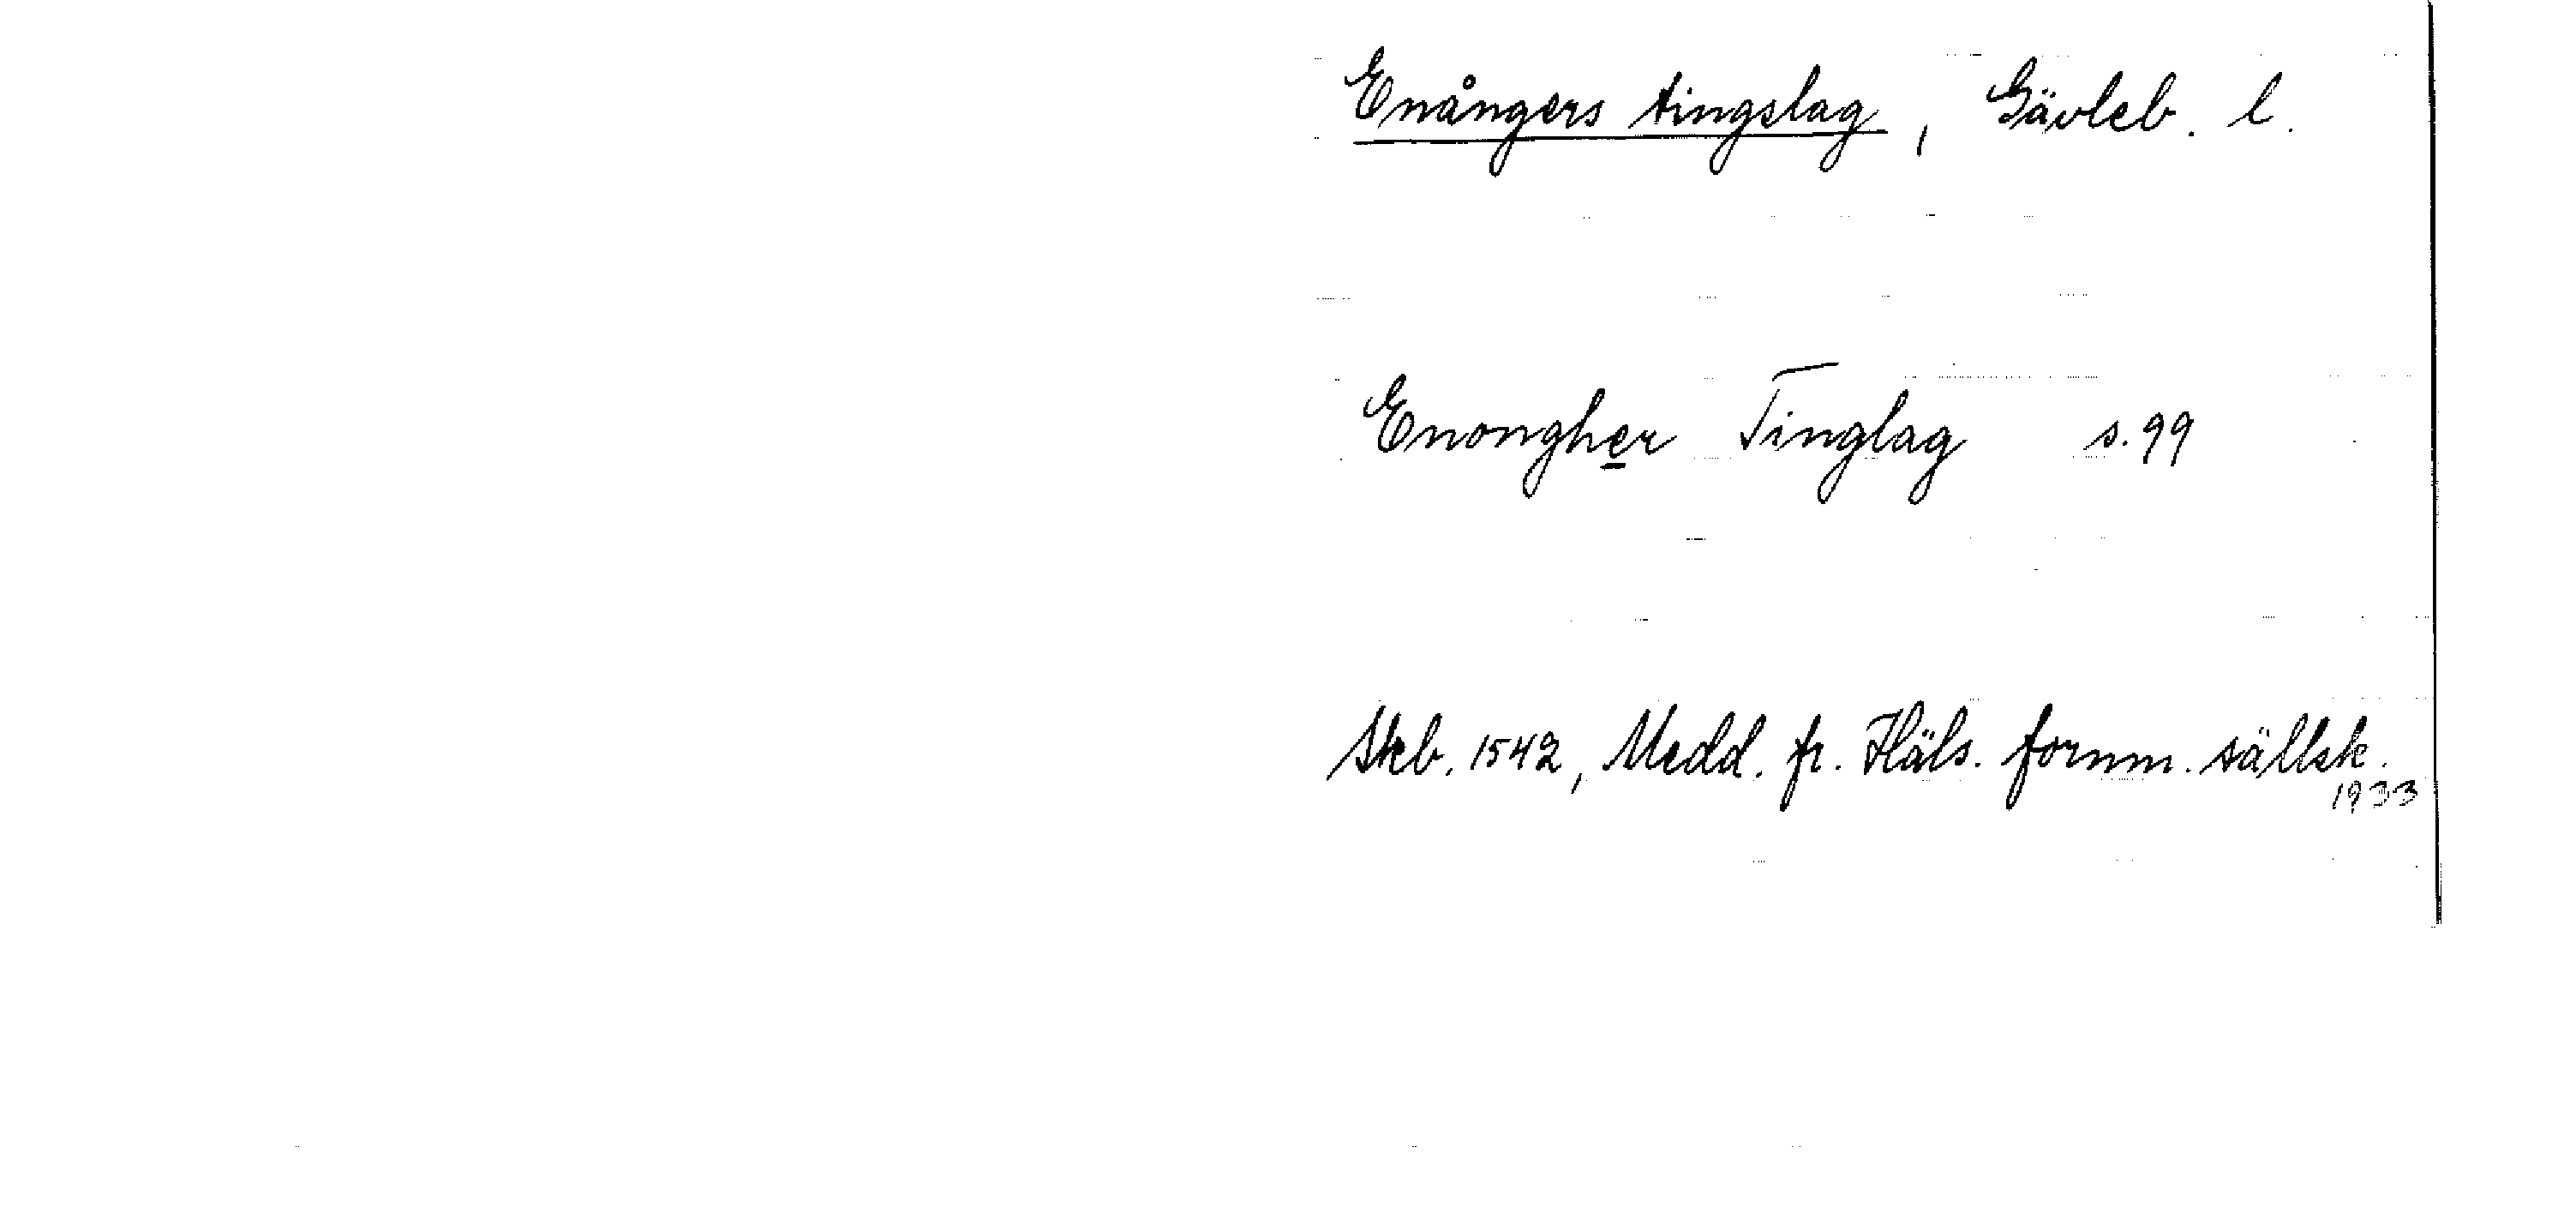 Enångers tingslag, Gävleb. l.
Enongher Tinglag s. 99
Skb. 1542, Medd. fr. Häls. fornm. sällsk.
1933